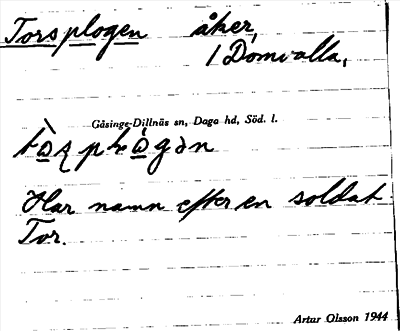 Torsplogen åker,
1 Domvalla,
Gåsinge-Dillnäs sn, Daga hd, Söd. l.
Har namn efter en soldat
Tor.
Artur Olsson 1944